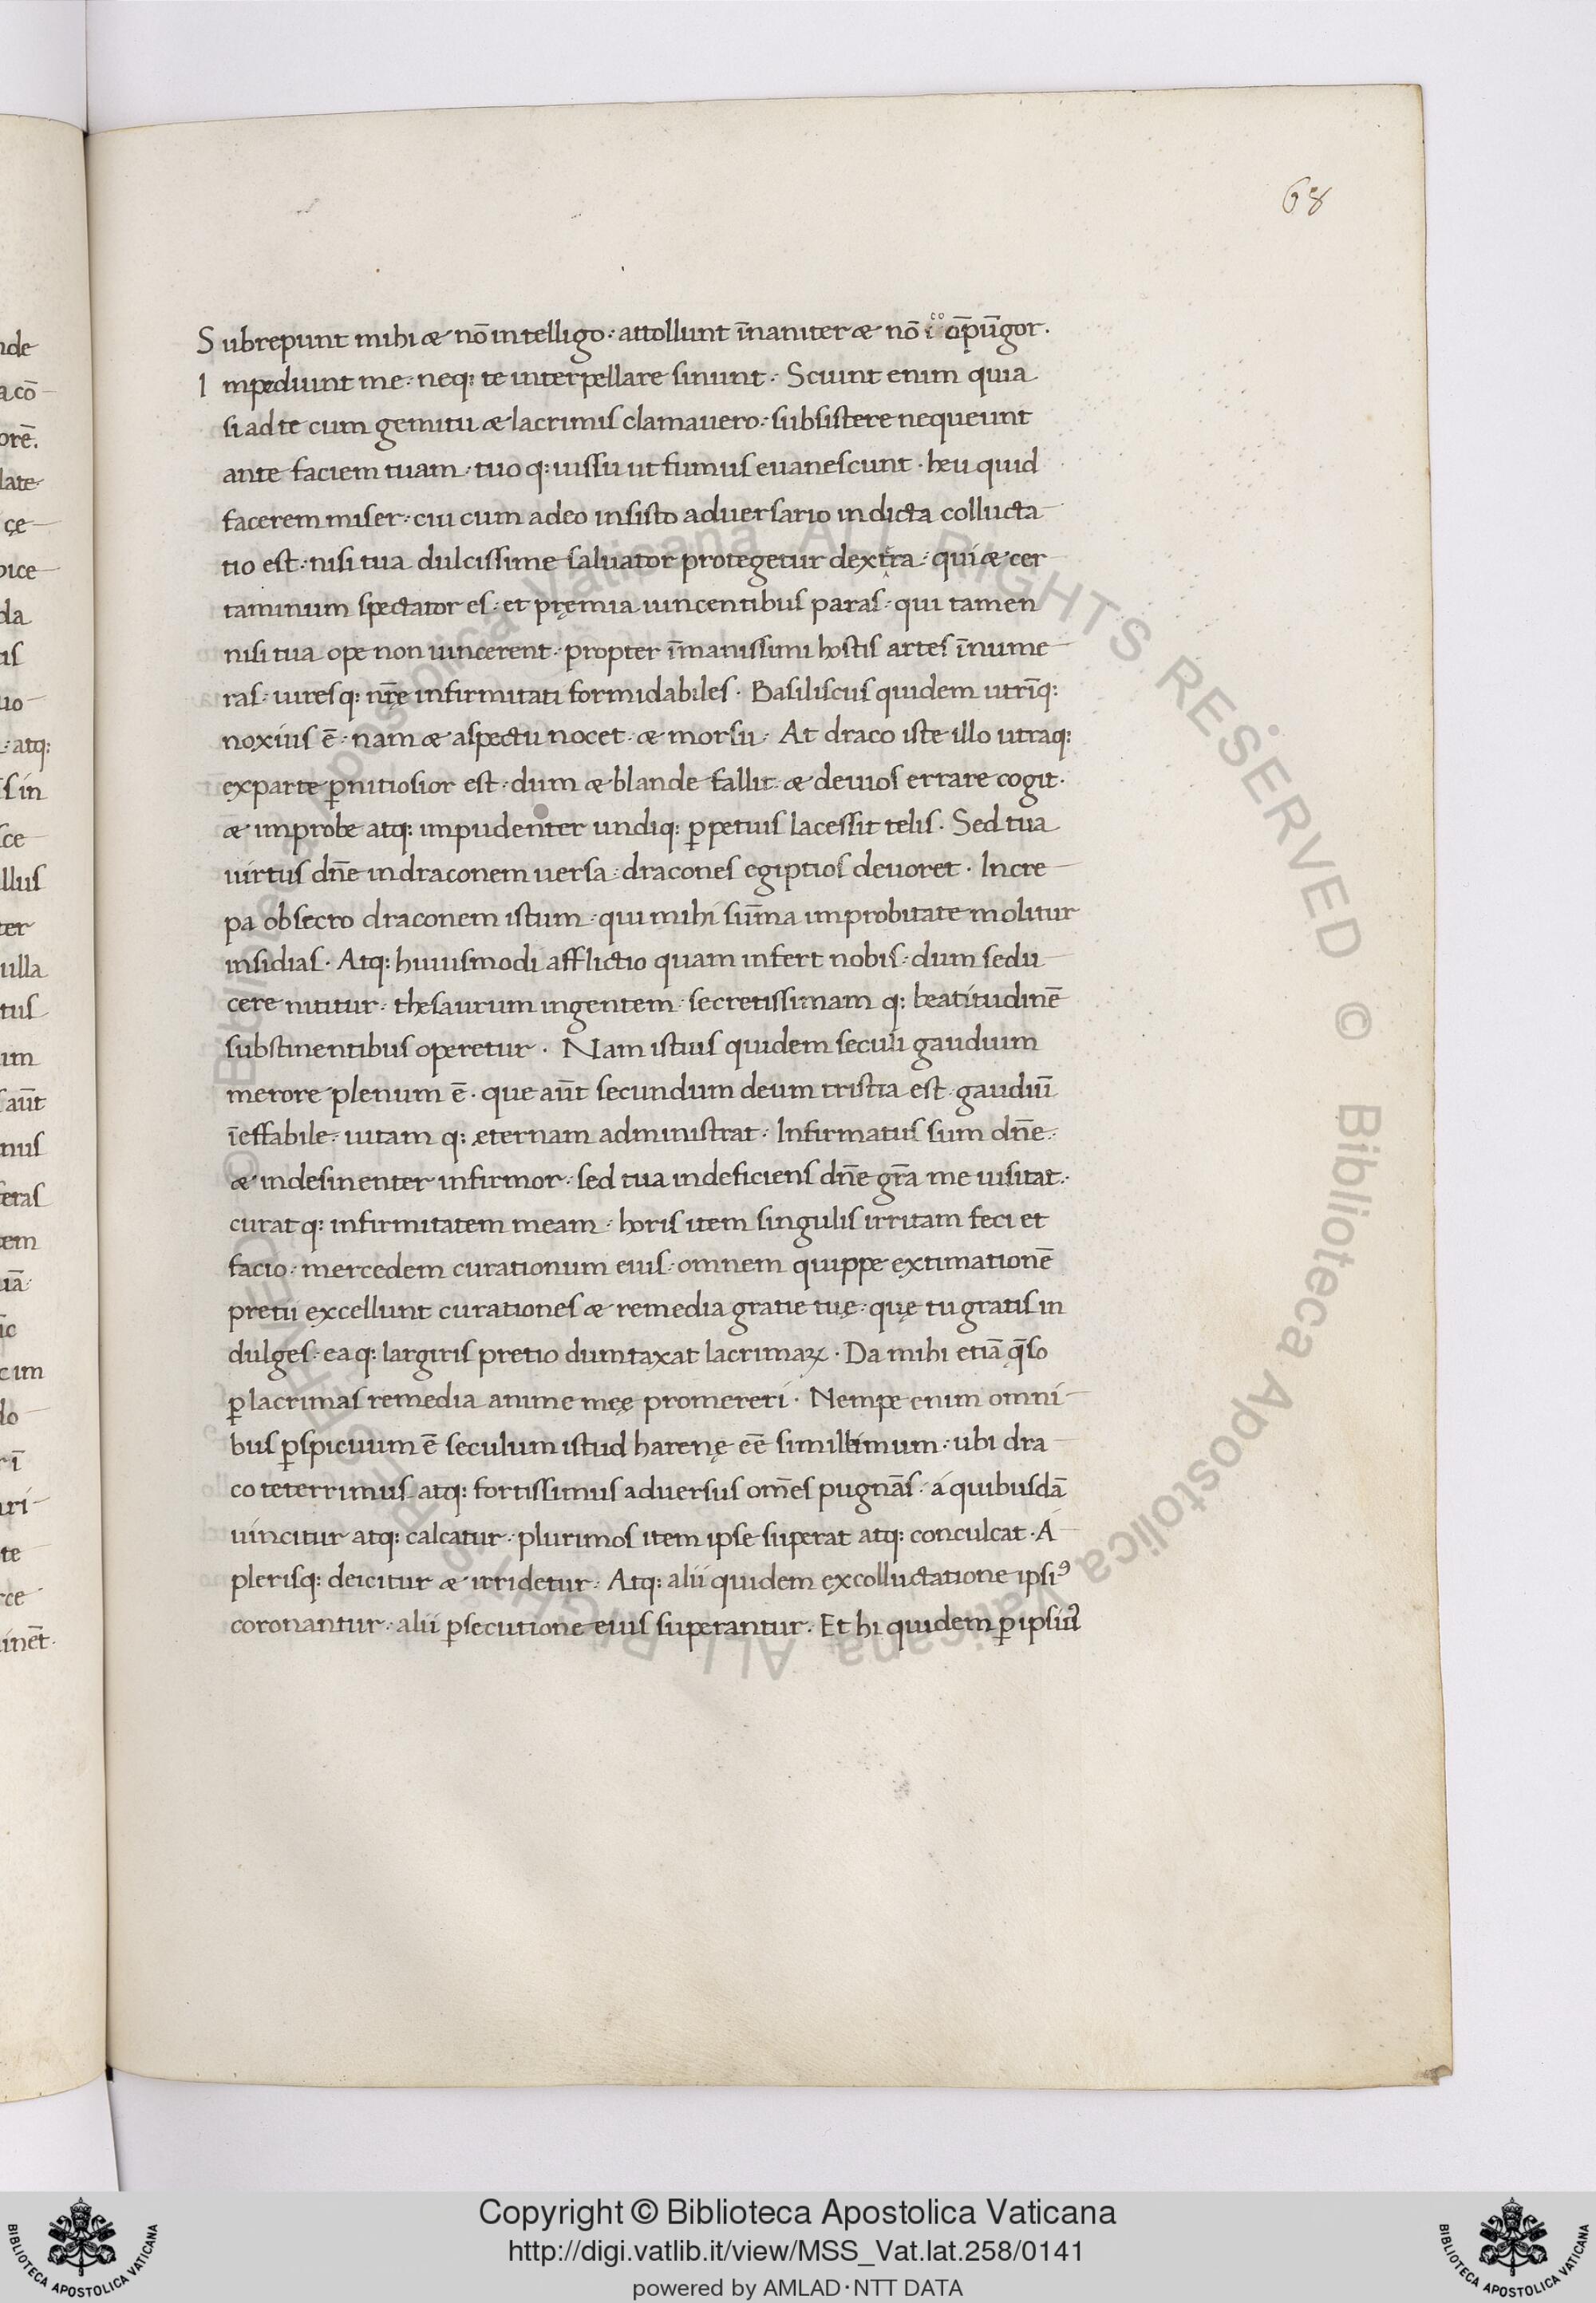 68
Subrepunt mihi æ nō intelligo · attollunt īnaniter æ nō cōpūgor ·
Impediunt me · neq: te interpellare sinunt · Sciunt enim quia
si ad te cum gemitu æ lacrimis clamauero · subsistere nequeunt
ante faciem tuam · tuo q: iussu ut fumus euanescunt · heu quid
facerem miser · cui cum adeo insisto aduersario indicta collucta
tio est · nisi tua dulcissime saluator protegetur dextra · qui æ cer
taminum spectator es · et pręmia uincentibus paras · qui tamen
nisi tua ope non uincerent · propter īmanissimi hostis artes īnume
ras · uiresq: nr̄ę infirmitati formidabiles · Basiliscus quidem utrīq:
noxius ē · nam æ aspectu nocet · æ morsu · At draco iste illo utraq:
ex parte p̄nitiosior est · dum æ blande fallit · æ deuios errare cogit ·
æ improbe atq: impudenter undiq: p̄petuis lacessit telis · Sed tua
uirtus dn̄e in draconem uersa · dracones egiptios deuoret · Incre
pa obsecro draconem istum · qui mihi sūma improbitate molitur
insidias · Atq: huiusmodi afflictio quam infert nobis · dum sedu
cere nititur · thesaurum ingentem · secretissimam q: beatitudinē
substinentibus operetur · Nam istius quidem seculi gaudium
merore plenum ē · que aūt secundum deum tristia est · gaudiū
īeffabile · uitam q: æternam administrat · Infirmatus sum dn̄e ·
æ indesinenter infirmor · sed tua indeficiens dn̄e gr̄a me uisitat ·
curat q: infirmitatem meam · horis item singulis irritam feci et
facio · mercedem curationum eius · omnem quippe extimationē
pretii excellunt curationes æ remedia gratie tuę · quę tu gratis in
dulges · ea q: largiris pretio dumtaxat lacrimaꝝ · Da mihi etiā q̄so
p̄ lacrimas remedia anime męę promereri · Nempe enim omni
bus p̄spicuum ē seculum istud harenę eē simillimum · ubi dra
co teterrimus atq: fortissimus aduersus om̄es pugnās · á quibusdā
uincitur atq: calcatur · plurimos item ipse superat atq: conculcat · A
plerisq: deicitur æ irridetur · Atq: alii quidem ex colluctatione ipsiꝰ
coronantur · alii p̄secutione eius superantur · Et hi quidem p̄ ipsiuꝰ
nde
a cō
orē.
late
cę
pice
da
tis
uo
· atq:
s in
sce
llus
ter
ulla
tus
im
aūt
nus
eras
tem
iā
c im
do
uri
te
rce
inēt
Copyright © Biblioteca Apostolica Vaticana
http://digi.vatlib.it/view/MSS_Vat.lat.258/0141
powered by AMLAD·NTT DATA
BIBLIOTECA APOSTOLICA VATICANA
BIBLIOTECA APOSTOLICA VATICANA
© Biblioteca Apostolica Vaticana ALL RIGHTS RESERVED © Biblioteca Apostolica Vaticana ALL RIGHTS RESERVED